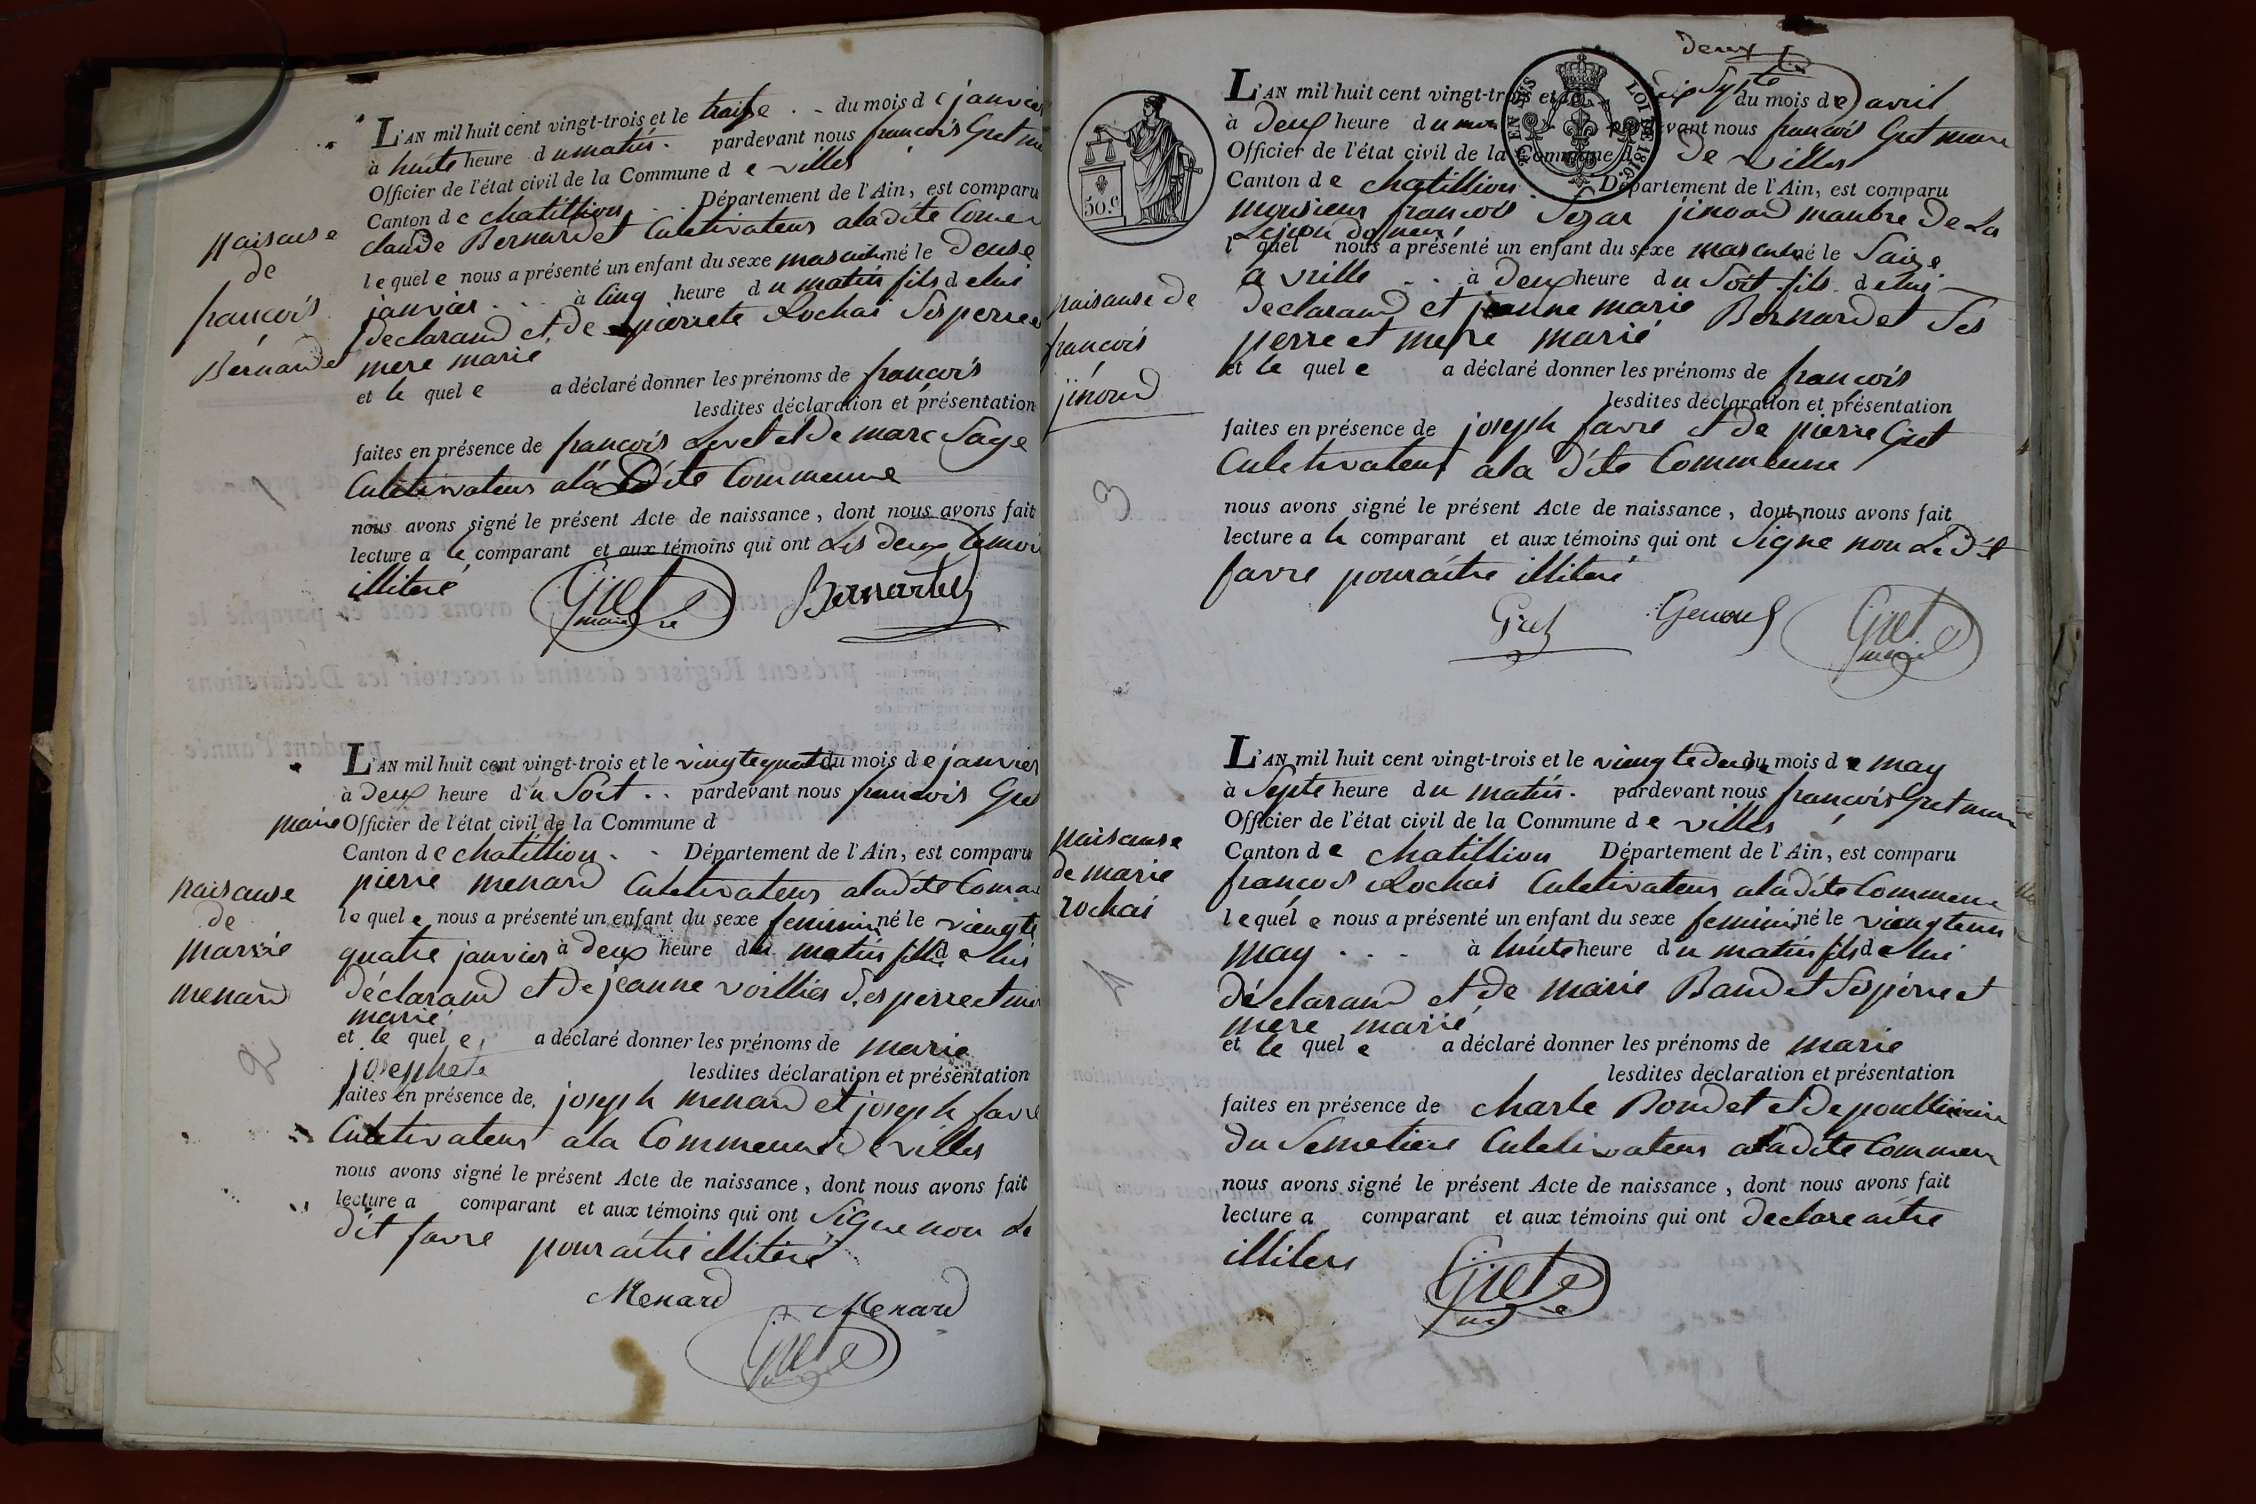 L'AN mil huit cent vingt-trois et le traise du mois de janvier
à huite heure du matin. pardevant nous françois Gret
Officier de l'état civil de la Commune de villes
Canton de chatillion Département de l'Ain, est comparu
claude Bernardet Culetivateur aladite
lequele nous a présenté un enfant du sexe masculin né le douse
janvier à cinq heure du matin fils de lui
declarand et de pierrete Rochai
mere marié
et le quele a déclaré donner les prénoms de françois
lesdites déclaration et présentation
faites en présence de françois Levet et de marc Sage
Culetivateur ala Dite Commeune
nous avons signé le présent Acte de naissance, dont nous avons fait
lecture a le comparant et aux témoins qui ont Les deux temoin
illiteré
Gret maire Bernardet
naisanse
de
françois
Bernardet
1
L'AN mil huit cent vingt-trois et le du mois de janvier
à deux heure du Soit pardevant nous francois Gret
maire Officier de l'état civil de la Commune d
Canton de chatillion Département de l'Ain, est comparu
pierre menard Culetivateur aladite
lequele nous a présenté un enfant du sexe feminin né le viengte
quatre janvier à deux heure du matin fille de lui
déclarand et de jeanne voillies
marié
et le quele a déclaré donner les prénoms de marie
josephete lesdites déclaration et présentation
faites en présence de joseph menard et joseph favre
Culetivateur ala Commeune de villes
nous avons signé le présent Acte de naissance, dont nous avons fait
lecture a comparant et aux témoins qui ont Signe non Le
dit favre pour aitre illiteré
Menard Menard
Gret
naisanse
de
marie
menard
2
deux
L'AN mil huit cent vingt-trois et le dix Sypte du mois de avril
à deux heure du pardevant nous francois Gret maire
Officier de l'état civil de la Commune de villes
Canton de chatillion Département de l'Ain, est comparu
monsieur francois jinoud manbre de La
lequel nous a présenté un enfant du sexe masculin né le Saize
avrille à deux heure du Soit fils de lui
declarand et jeanne marie Bernardet Ses
perre et mere marié
et le quele a déclaré donner les prénoms de françois
lesdites déclaration et présentation
faites en présence de joseph favre et de pierre Gret
Culetivateur ala dite Commeune
nous avons signé le présent Acte de naissance, dont nous avons fait
lecture a le comparant et aux témoins qui ont Signe non Le dit
favre pour aitre illiteré
Gret Genoud Gret maire
50.c
EN SUS LOI DE 1816.
naisanse de
francois
jinoud
3
L'AN mil huit cent vingt-trois et le du mois de may
à Septe heure du matin. pardevant nous françois Gret
Officier de l'état civil de la Commune de villes
Canton de chatillion Département de l'Ain, est comparu
françois Rochai Culetivateur aladite Commeune
lequele nous a présenté un enfant du sexe feminin né le
may à huite heure du matin fils de lui
déclarand et de marie Baudet
mere marié
et le quele a déclaré donner les prénoms de marie
lesdites déclaration et présentation
faites en présence de charle Boudet et de
du Semetiere Culetivateur aladite
nous avons signé le présent Acte de naissance, dont nous avons fait
lecture a comparant et aux témoins qui ont declare aitre
illitere
Gret
naisanse
de marie
rochai
4